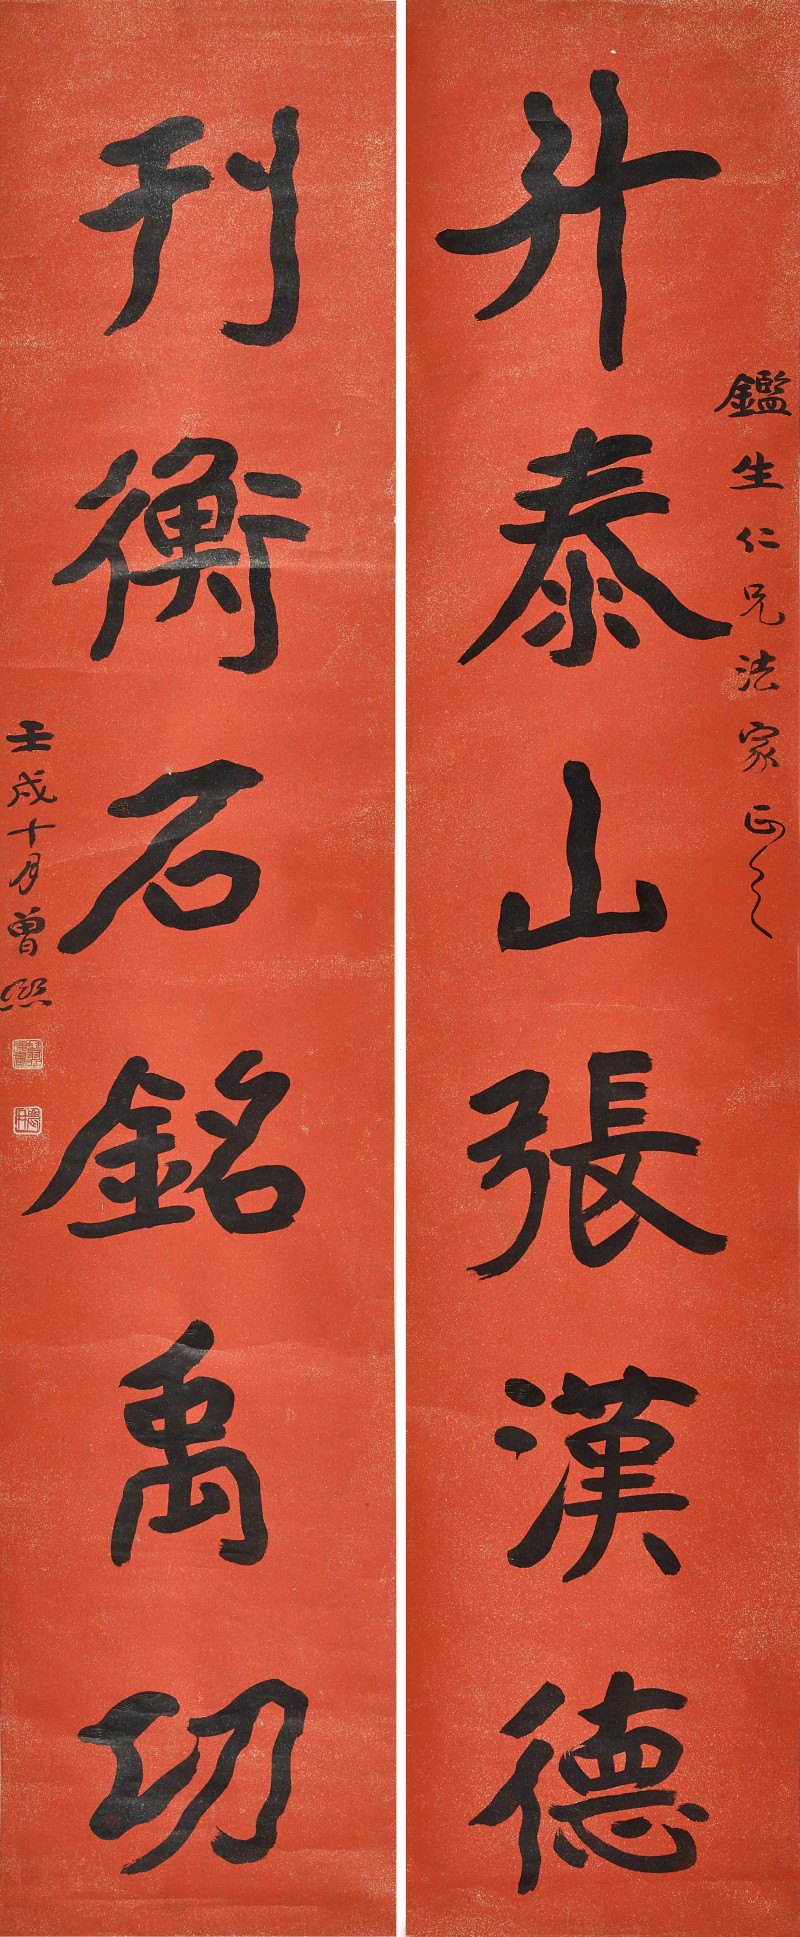 升泰山張漢德
鑑生仁兄法家正之
刊衡石銘禹功
壬戌十月曾熙